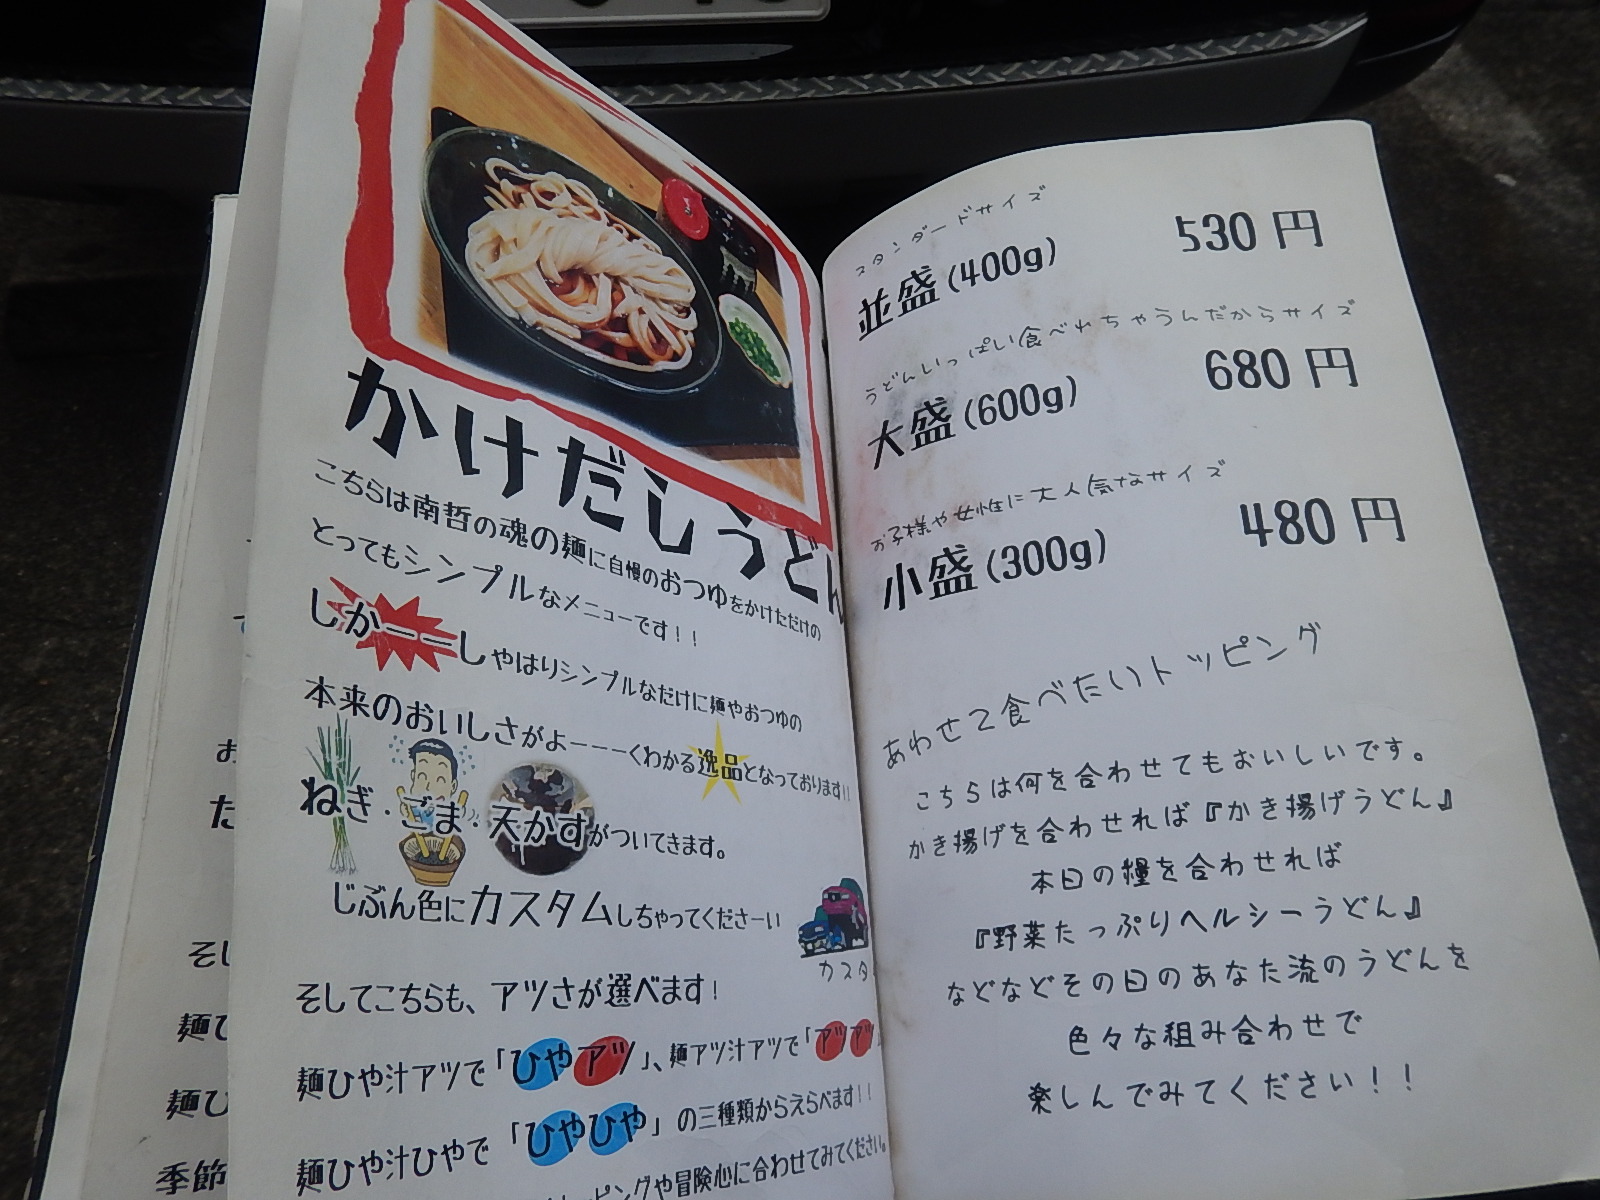 かけだしうどん
こちらは南哲の魂の麺に自慢のおつゆをかけただけの
とってもシンプルなメニューです!!
しかーーしやはりシンプルなだけに麺やおつゆの
本来のおいしさがよーーーくわかる逸品となっております!!
ねぎ・ごま・天かすがついてきます。
じぶん色にカスタムしちゃってくださーい
カスタ
そしてこちらも、アツさが選べます!
麺ひや汁アツで「ひやアツ」、麺アツ汁アツで「アツアツ
麺ひや汁ひやで「ひやひや」の三種類からえらべます!!
ッピングや冒険心に合わせてみてください。
スタンダードサイズ
並盛(400g) 530円
うどんいっぱい食べれちゃうんだからサイズ
大盛(600g) 680円
お子様や女性に大人気なサイズ
小盛(300g) 480円
あわせて食べたいトッピング
こちらは何を合わせてもおいしいです。
かき揚げを合わせれば『かき揚げうどん』
本日の糧を合わせれば
『野菜たっぷりヘルシーうどん』
などなどその日のあなた流のうどんを
色々な組み合わせで
楽しんでみてください!!
お
た
そし
麺ひ
麺ひ
季節